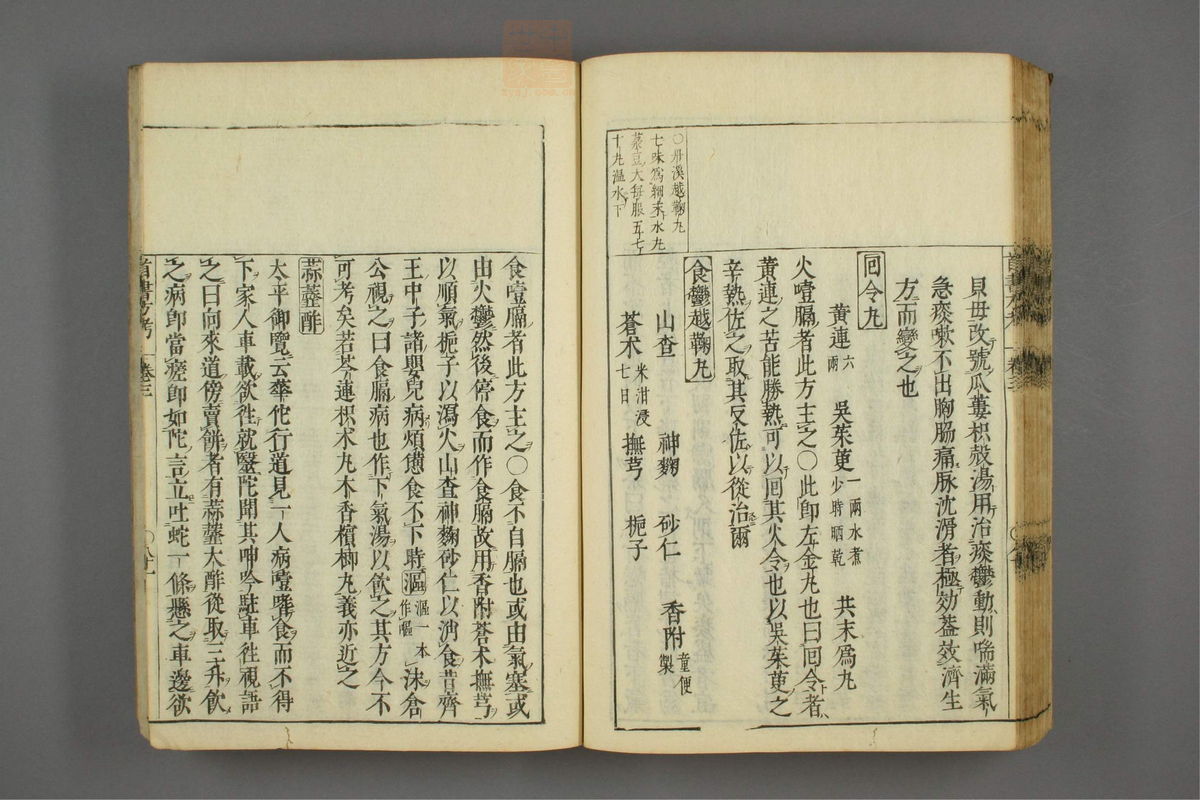 貝母改號瓜蔞枳殻湯用治痰鬱動則喘滿氣
急痰嗽不出胸膓痛脉沈滑者極効葢效濟生
方而變之也
回令丸
黃連六兩 吳茱萸一兩水煮少時晒乾 共末爲丸
火噎膈者此方主之〇此即左金丸也曰回令者
黃連之苦能勝熱可以回其火令也以吳茱萸之
辛熱佐之取其反佐以從治爾
食鬱越鞠丸
山查 神麯 砂仁 香附童便製
蒼朮米泔浸七日 撫芎 梔子
〇丹溪越鞠丸
七味爲細末水丸
菉豆大每服五七
十丸温水下
食噎膈者此方主之〇食不自膈也或由氣塞或
由火鬱然後停食而作食膈故用香附蒼朮撫芎
以順氣梔子以瀉火山查神麯砂仁以消食昔齊
王中子諸嬰兒病煩懣食不下時漚漚一本作嘔沫倉
公視之曰食膈病也作下氣湯以飲之其方今不
可考矣若芩連枳朮丸木香檳榔丸義亦近之
蒜虀酢
太平御覽云華佗行道見一人病噎嗜食而不得
下家人車載欲徃就醫佗聞其呻吟駐車徃視語
之曰向來道傍賣餅者有蒜虀大酢從取三升飲
之病卽當瘥卽如佗言立吐蛇一條懸之車邊欲